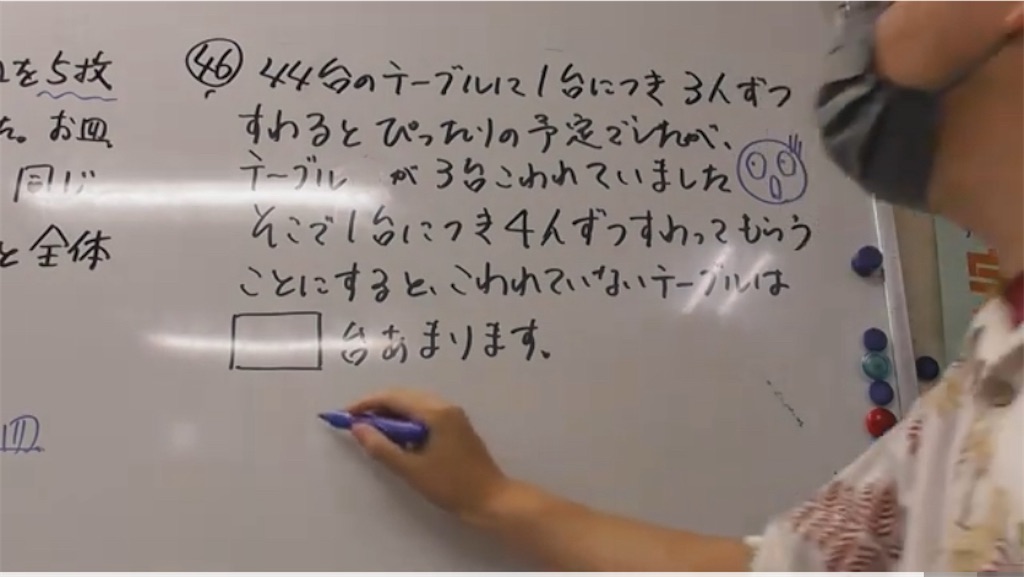 を5枚
た。お皿
同じ
と全体
㊻ 44台のテーブルに1台につき3人ずつ
すわるとぴったりの予定でしたが、
テーブル が3台こわれていました
そこで1台につき4人ずつすわってもらう
ことにすると、こわれていないテーブルは
台あまります。